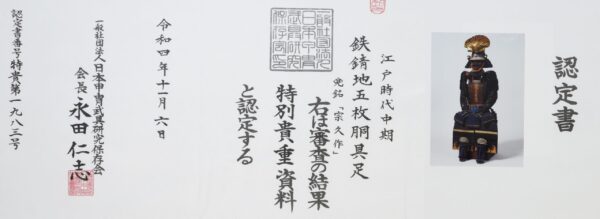 認定書
江戸時代中期
鉄錆地五枚胴具足
兜銘「宗久作」
右は審査の結果
特別貴重資料
と認定する
令和四年十一月六日
一般社団法人日本甲冑武具研究保存会
会長 永田仁志
認定書番号特貴第一九八三号